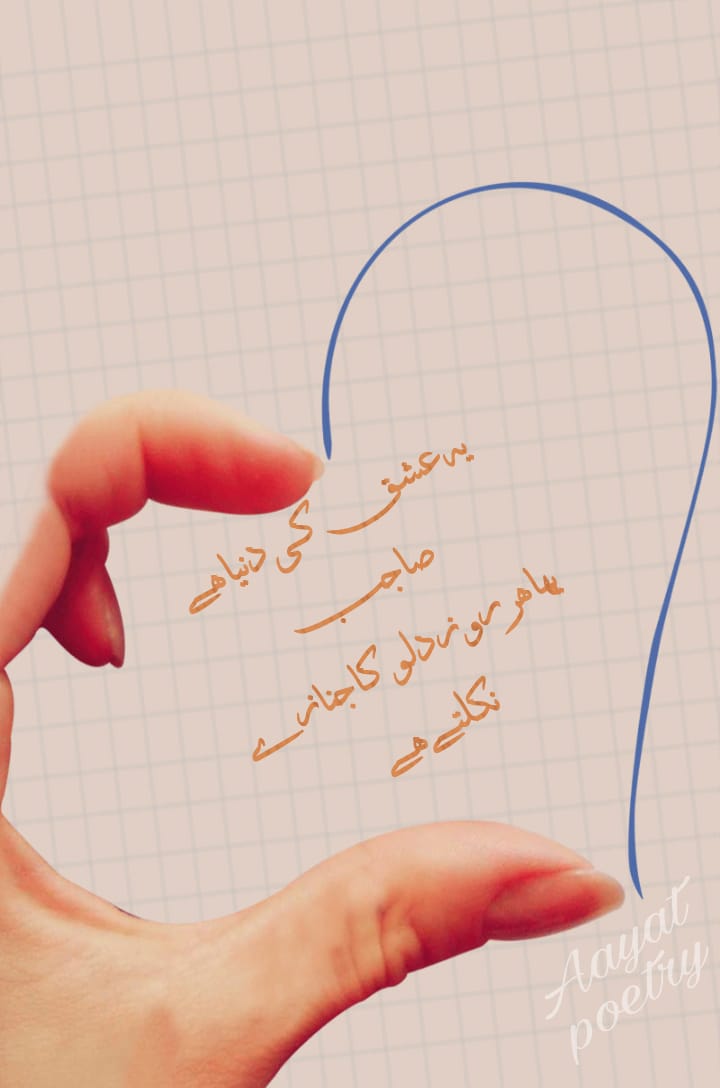 یہ عشق کی دنیا ہے
صاحب
یہا ہر روز دلو کا جنازے
نکلتے ہے
Aayat
poetry